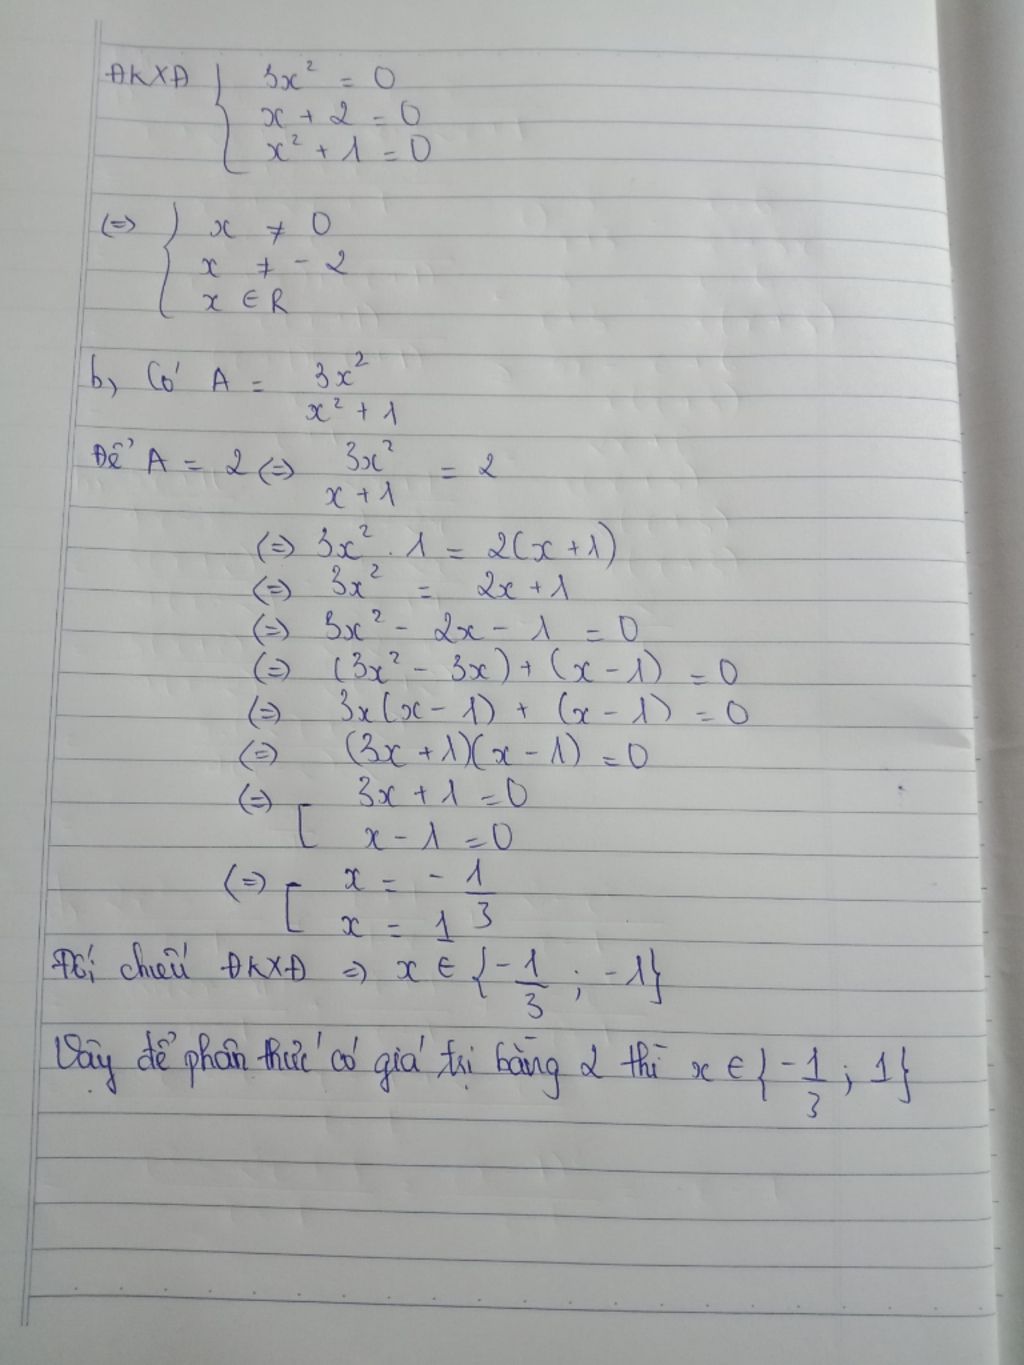 ĐKXĐ { 3x² = 0
x + 2 = 0
x² + 1 = 0
(=> { x ≠ 0
x ≠ - 2
x ∈ R
b, Có A = 3x²
x² + 1
Để A = 2 (=> 3x² = 2
x + 1
(=> 3x² . 1 = 2(x + 1)
(=> 3x² = 2x + 1
(=> 3x² - 2x - 1 = 0
(=> (3x² - 3x) + (x - 1) = 0
(=> 3x(x - 1) + (x - 1) = 0
(=> (3x + 1)(x - 1) = 0
(=> [ 3x + 1 = 0
x - 1 = 0
(=> [ x = - 1/3
x = 1
Đối chiếu ĐKXĐ => x ∈ {-1/3 ; -1}
Vậy để phân thức có giá trị bằng 2 thì x ∈ {-1/3 ; 1}